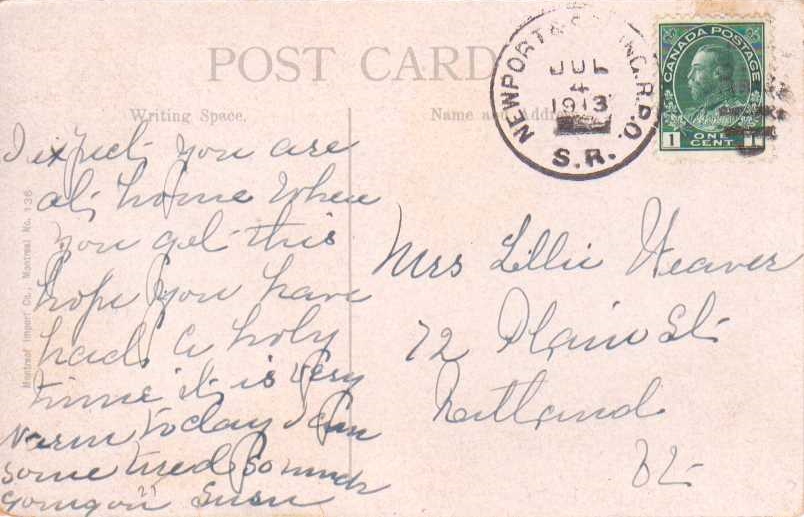 POST CARD
Writing Space.
Name and Address
NEWPORT & SPRING. R.P.O.
JUL
4
1913
S.R.
CANADA POSTAGE
1 ONE CENT 1
Montreal Import Co., Montreal No. 136
I expect you are
at home when
you get this
hope you have
had a holy
time it is very
warm today I am
some tired so much
going on Susu
Mrs Lillie Weaver
72 Plain St
Rutland